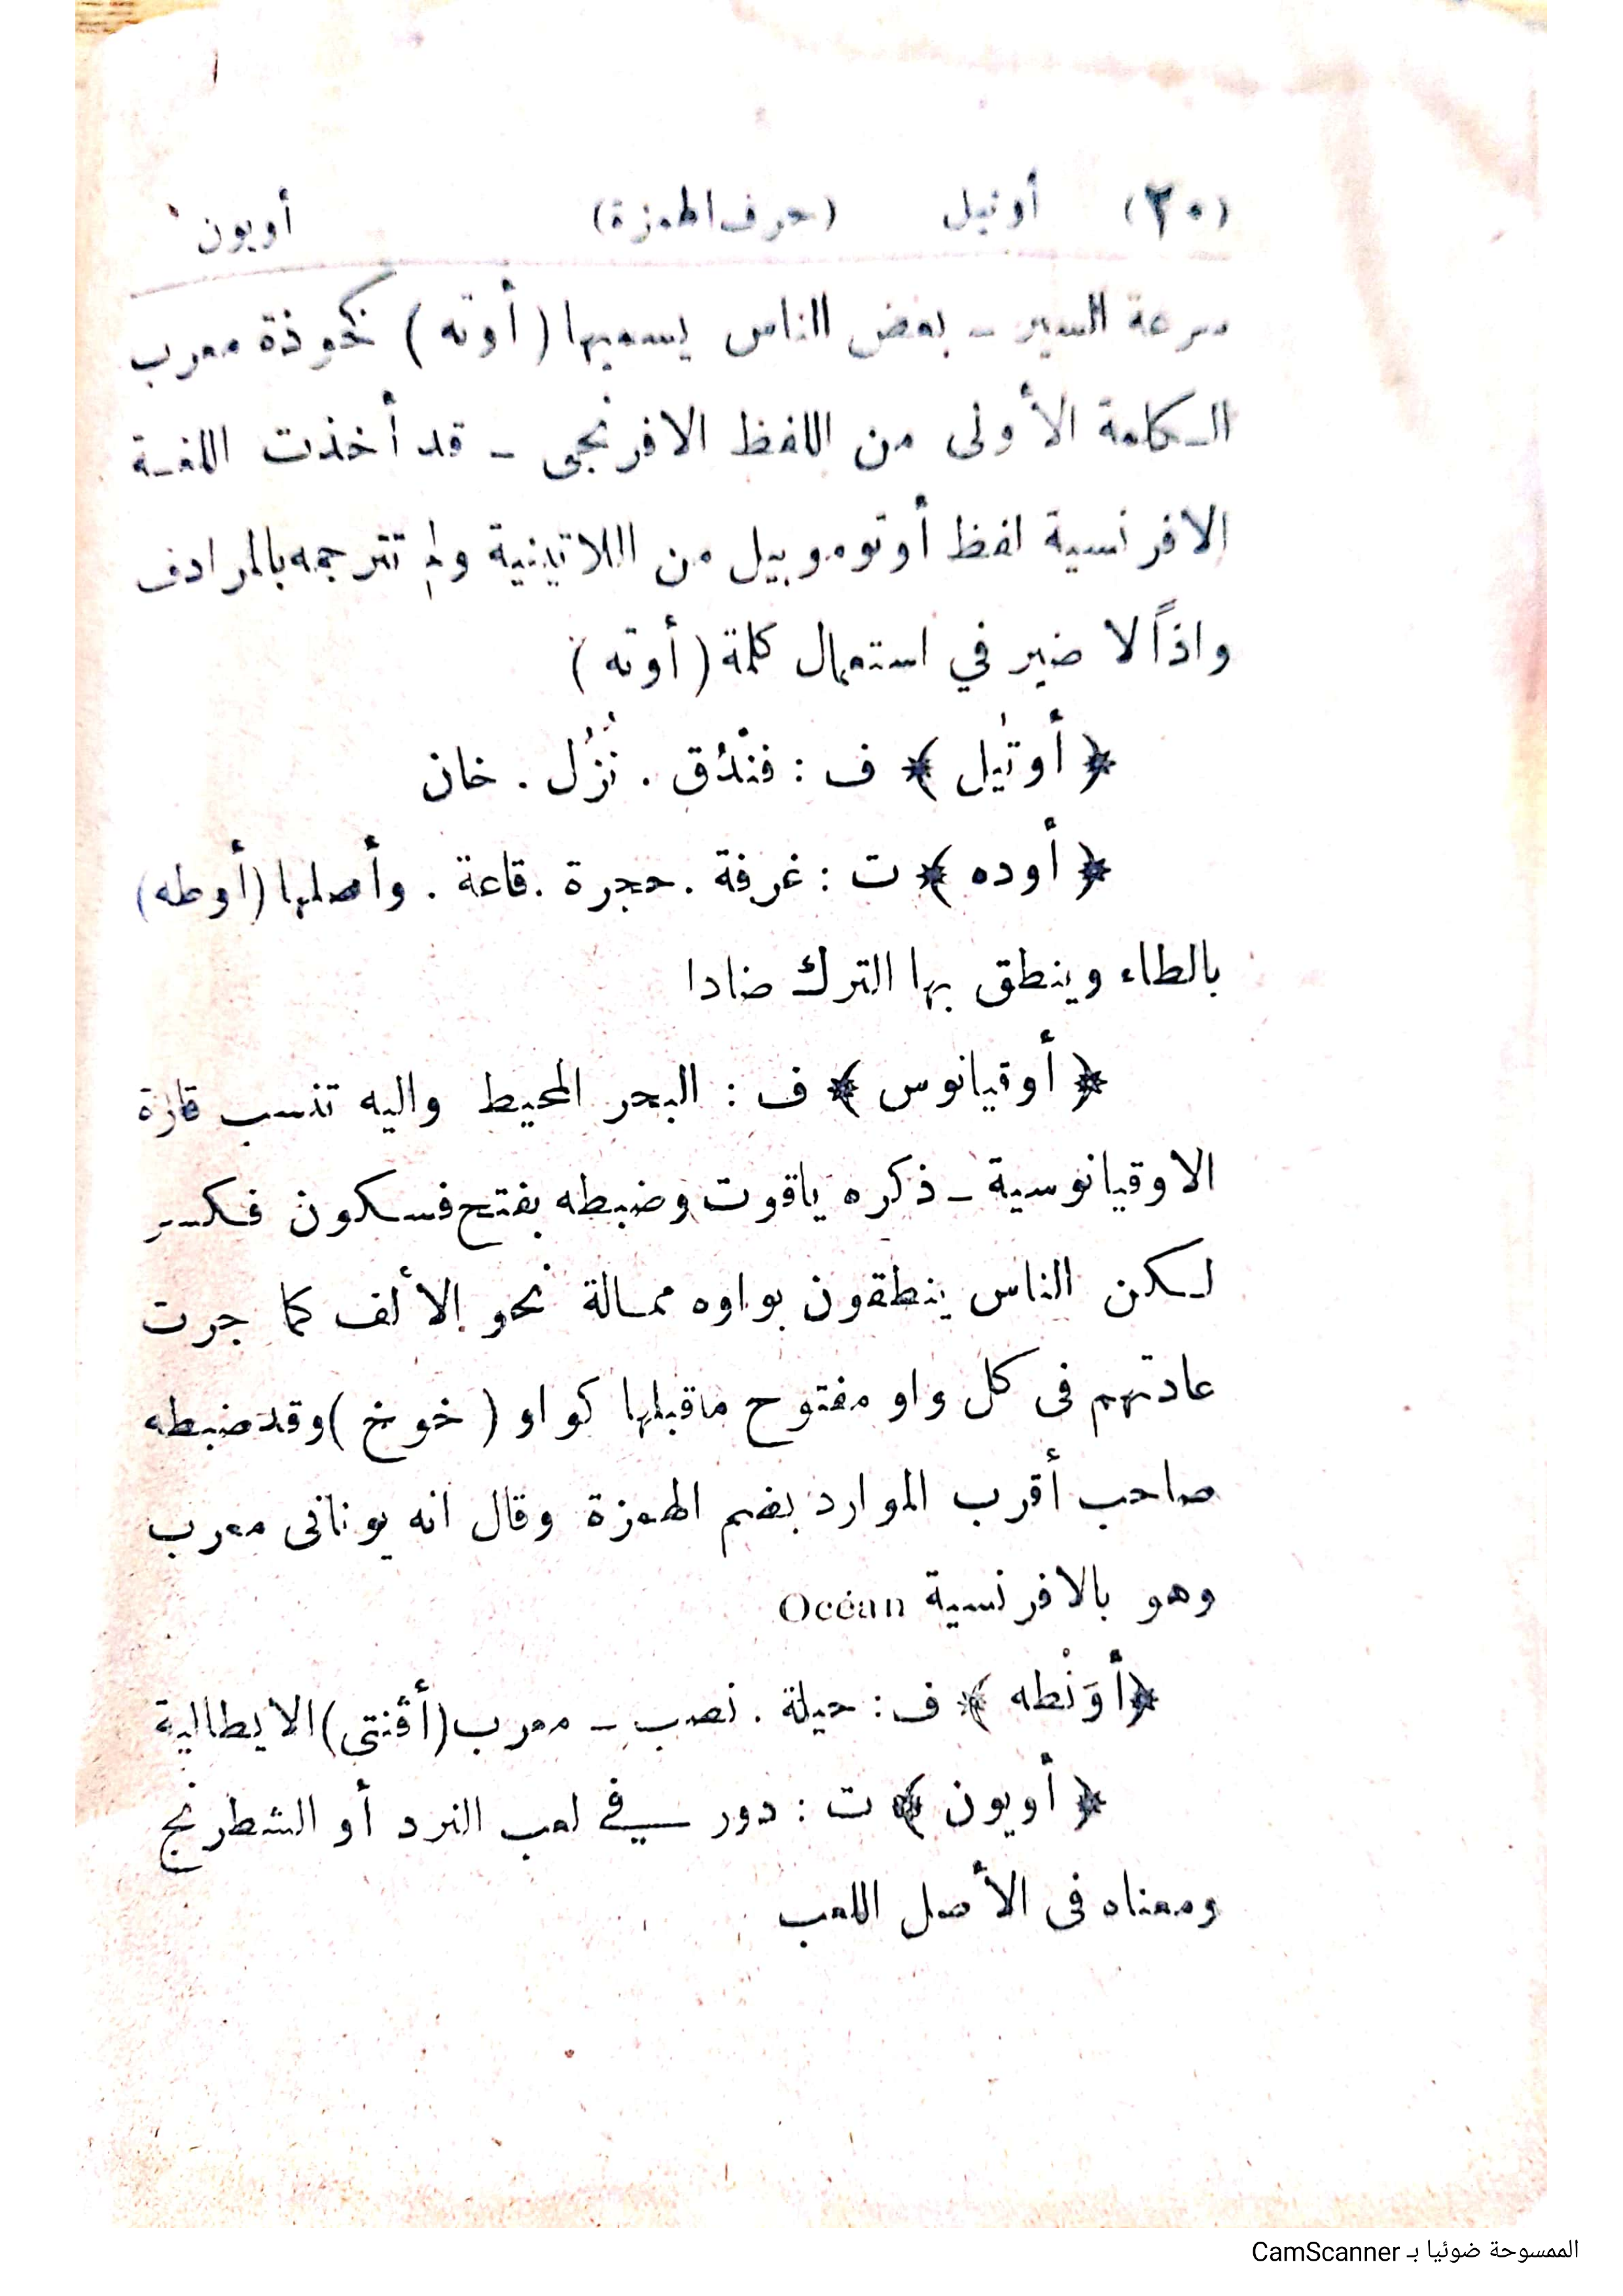 (٢٠) أوتيل (حرف الهمزة) أويون
سرعة السير ـ بعض الناس يسميها ( أوته ) خوذة معرب
الكلمة الأولى من اللفظ الافرنجى ـ قد أخذت اللغة
الافرنسية لفظ أوتوموبيل من اللاتينية ولم تترجمه بالمرادف
واذاً لا ضير في استعمال كلمة ( أوته )
﴿ أوتيل ﴾ ف : فنْدُق . نُزُل . خان
﴿ أوده ﴾ ت : غرفة . حجرة . قاعة . وأصلها (أوطه)
بالطاء وينطق بها الترك ضادا
﴿ أوقيانوس ﴾ ف : البحر المحيط واليه تنسب قارة
الاوقيانوسية ـ ذكره ياقوت وضبطه بفتح فسكون فكسر
لكن الناس ينطقون بواوه ممالة نحو الألف كما جرت
عادتهم فى كل واو مفتوح ماقبلها كواو ( خوخ ) وقد ضبطه
صاحب أقرب الموارد بضم الهمزة وقال انه يونانى معرب
وهو بالافرنسية Océan
﴿ أوَنْطه ﴾ ف : حيلة . نصب ـ معرب (أڤنتى) الايطالية
﴿ أويون ﴾ ت : دور في لعب النرد أو الشطرنج
ومعناه فى الأصل اللعب
الممسوحة ضوئيا بـ CamScanner